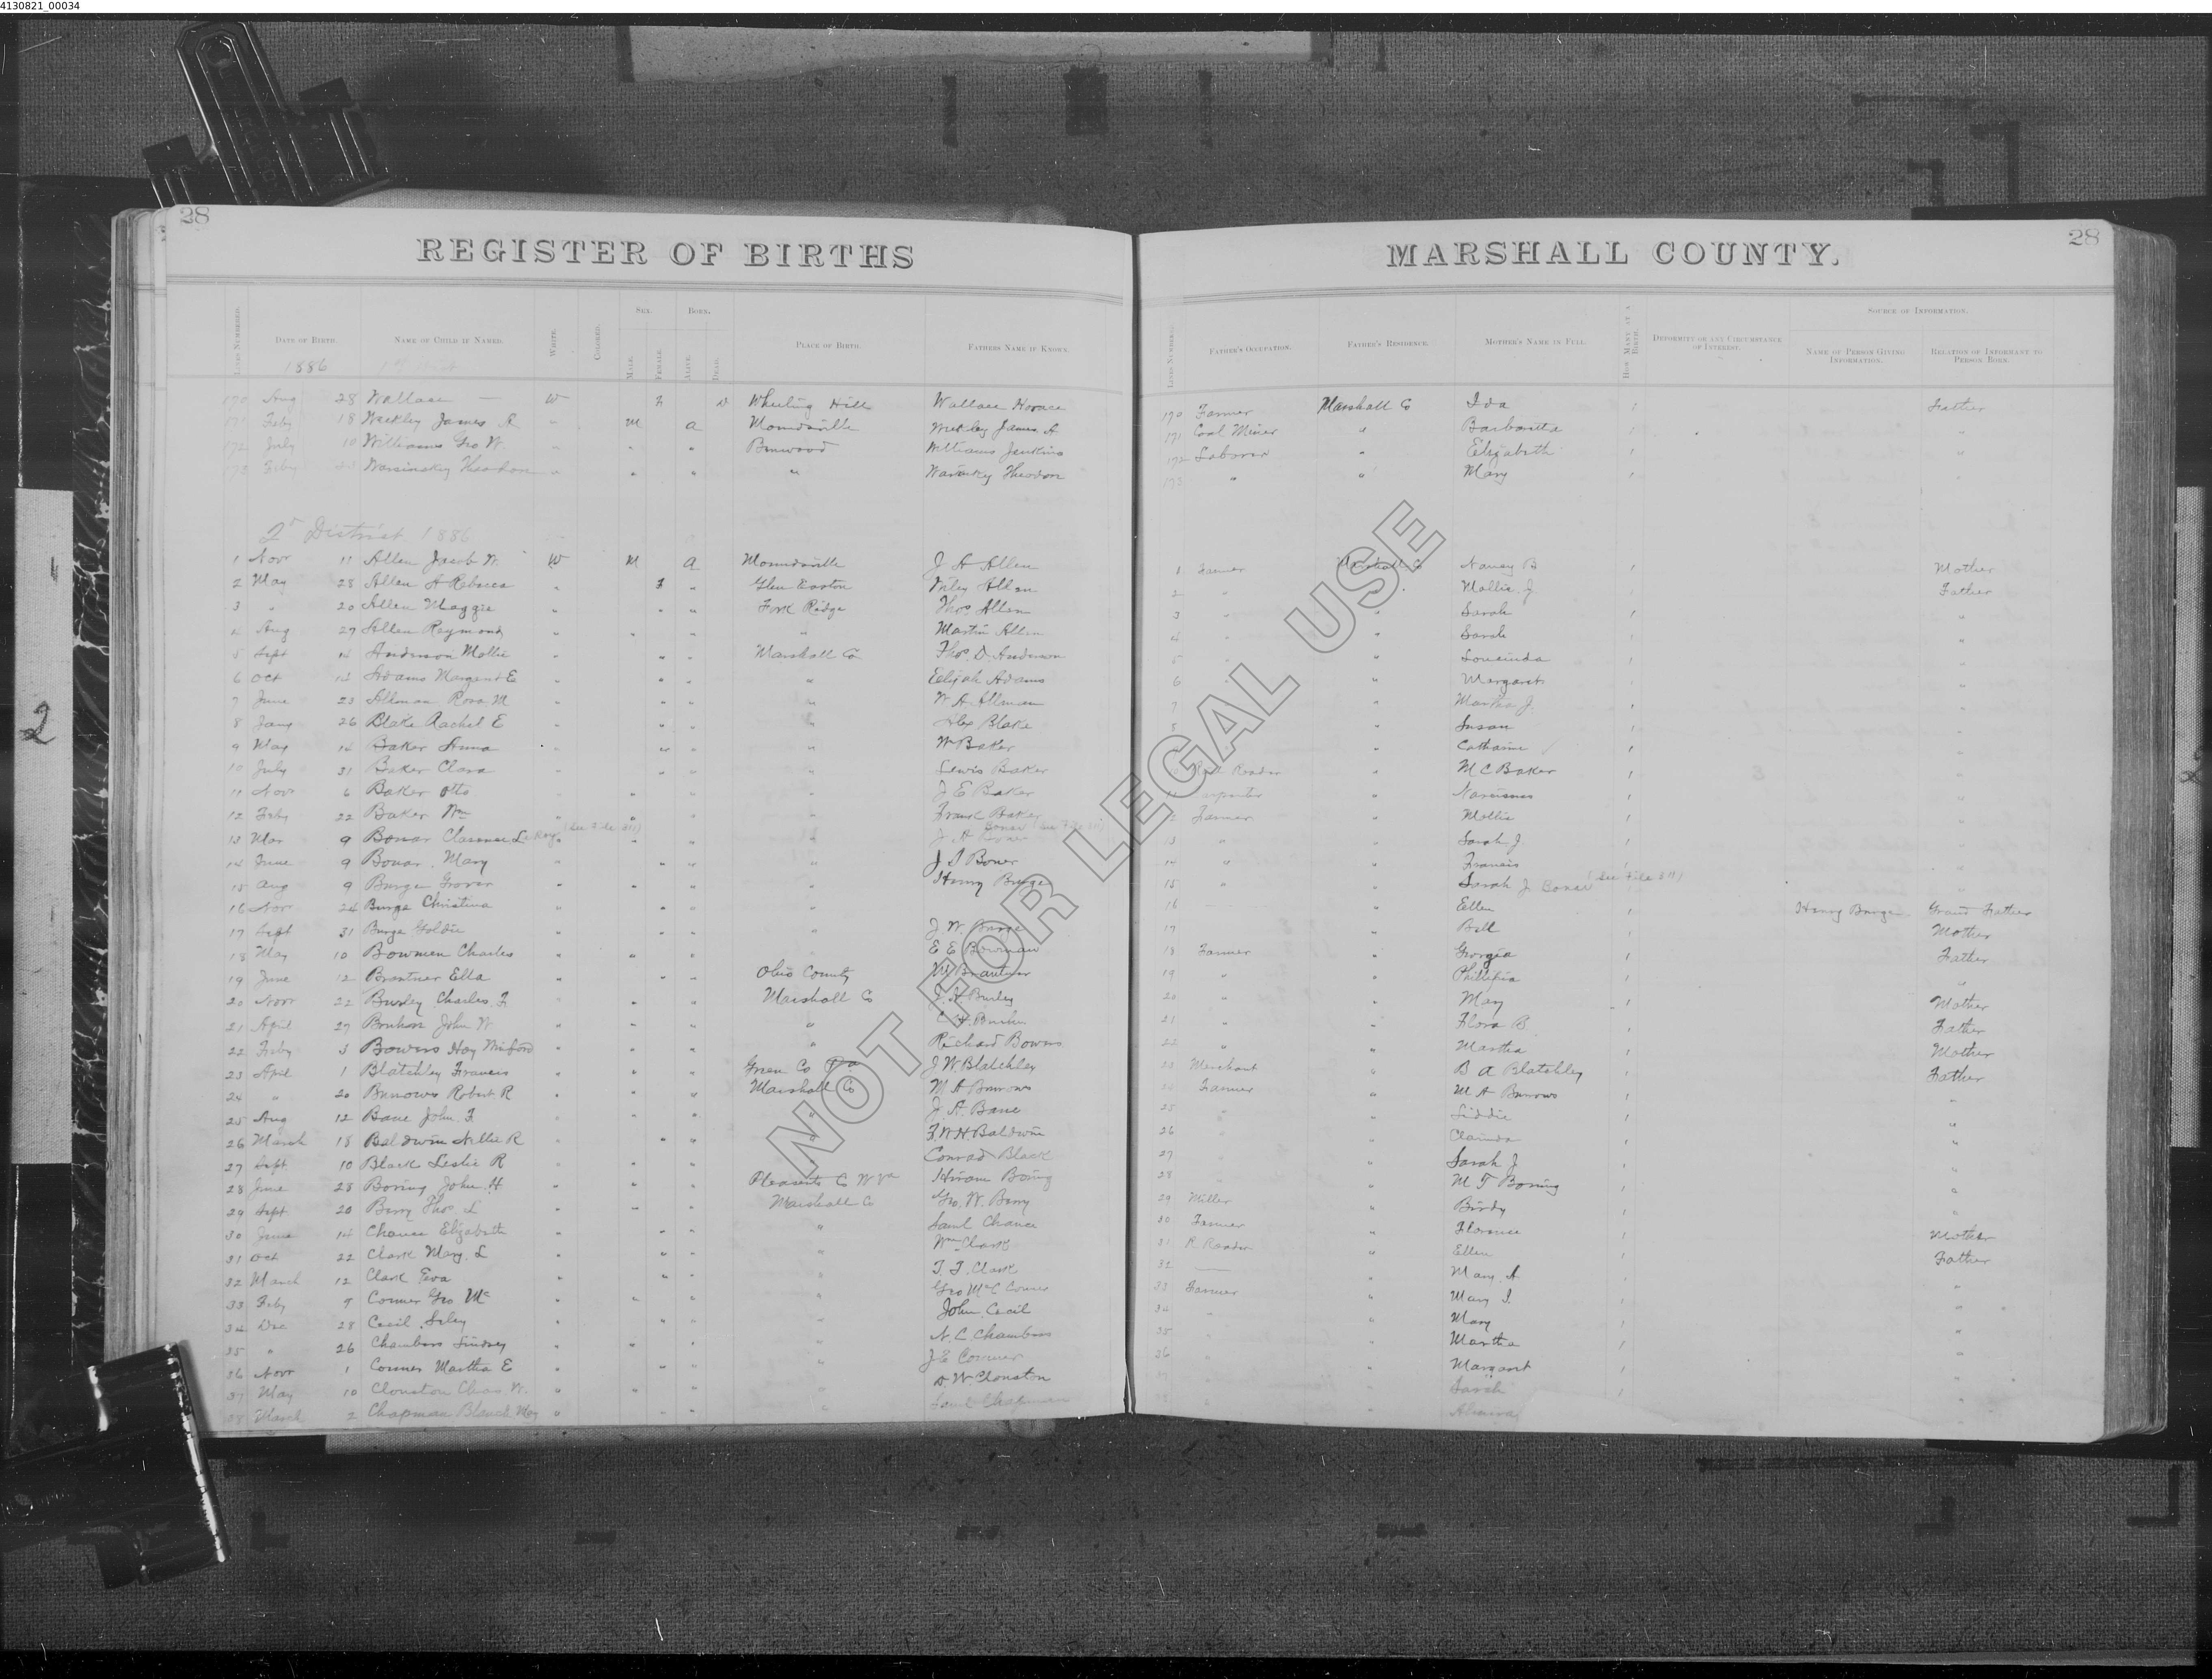 4130821_00034
28
REGISTER OF BIRTHS
MARSHALL COUNTY.
28
LINES NUMBERED. DATE OF BIRTH. NAME OF CHILD IF NAMED. WHITE. COLORED. SEX. MALE. FEMALE. BORN. ALIVE. DEAD. PLACE OF BIRTH. FATHERS NAME IF KNOWN.
LINES NUMBERED. FATHER'S OCCUPATION. FATHER'S RESIDENCE. MOTHER'S NAME IN FULL. HOW MANY AT A BIRTH. DEFORMITY OR ANY CIRCUMSTANCE OF INTEREST. SOURCE OF INFORMATION. NAME OF PERSON GIVING INFORMATION. RELATION OF INFORMANT TO PERSON BORN.
1886
170 Aug 28 Wallace — W F D Wheeling Hill Wallace Horace 170 Farmer Marshall Co Ida 1 Father
171 Feby 18 Weekley James A " M a Moundsville Weekley James A 171 Coal Miner " Barbaretta 1 "
172 July 10 Williams Geo W " " " Benwood Williams Jenkins 172 Laborer " Elizabeth 1 "
173 Feby Theodore " " " " Theodore 173 " " Mary 1 "
2d District 1886
1 Novr 11 Allen Jacob W. W M a Moundsville J A Allen 1 Farmer Marshall Co Nancy B 1 Mother
2 May 28 Allen A Rebecca " F " Glen Easton Wiley Allen 2 " " Mollie J. 1 Father
3 " 20 Allen Maggie " " " Fork Ridge Thos. Allen 3 " " Sarah 1 "
4 Aug 27 Allen Raymond " " " " Martin Allen 4 " " Sarah 1 "
5 Sept 14 Anderson Mollie " " " Marshall Co Thos. D. Anderson 5 " " Loueinda 1 "
6 Oct 14 Adams Margaret E " " " " Elijah Adams 6 " " Margaret 1 "
7 June 23 Allman Rosa M " " " " W A Allman 7 " " Martha J. 1 "
8 Jany 26 Blake Rachel E " " " " Alex Blake 8 " " Susan 1 "
9 May 14 Baker Anna " " " " W Baker " Catharine 1 "
10 July 31 Baker Clara " " " " Lewis Baker Rail Roader " M C Baker 1 "
11 Novr 6 Baker Otto " " " " J E Baker 11 Carpenter " Narcissus 1 "
12 Feby 22 Baker Wm " " " " Frank Baker 12 Farmer " Mollie 1 "
13 Mar 9 Bonar Clarence LeRoy (See File 311) " " " " J. A Bonar (See File 311) 13 " " Sarah J. 1 "
14 June 9 Bonar, Mary " " " " J T Boner 14 " " Francis 1 "
15 Aug 9 Burge Grover " " " " Henry Burge 15 " " Sarah J Bonar (See File 311) "
16 Nov 24 Burge Christina " " " " 16 " Ellen 1 Henry Burge Grand Father
17 Sept 31 Burge Goldie " " " " J. W. Burge 17 " Bell 1 Mother
18 May 10 Bowmen Charles " " " " E E Bowman 18 Farmer " Georgia 1 Father
19 June 12 Brantner Ella " " " Ohio County Brantner 19 " " Phillipia 1 "
20 Novr 22 Burley Charles. F. " " " Marshall Co J. H. Burley 20 " " Mary 1 Mother
21 April 27 John W " " " " 21 " " Flora B 1 Father
22 Feby 3 Bowers Hoy " " " " Richard Bowers 22 " " Martha 1 Mother
23 April 1 Blatchley Francis " " " Green Co Pa J. W. Blatchley 23 Merchant " B A Blatchley 1 Father
24 " 20 Burrows Robert R " " " Marshall Co M A Burrows 24 Farmer " M A Burrows 1 "
25 Aug 12 Bane John. F " " " " J. A. Bane 25 " " Liddie 1 "
26 March 18 Baldwin Nellie R " " " " F. W. H. Baldwin 26 " " 1 "
27 Sept 10 Black Leslie R " " " Conrad Black 27 " " Sarah J 1 "
28 June 23 Boring John. H " " " Pleasents Co W Va Hiram Boring 28 " " M T Boring 1 "
29 Sept 20 Berry Thos. L " " " Marshall Co Geo. W. Berry 29 Miller " Birdy 1 "
30 June 14 Chance Elizabeth " " " " Saml Chance 30 Farmer " Florence 1 Mother
31 Oct 22 Clark Mary. L " " " " Wm Clark 31 R Roader " Ellen 1 Father
32 March 12 Clark Eva " " " " T. F. Clark 32 — " Mary A 1 "
33 Feby 9 Conner Geo Mc " " " " Geo McC Conner 33 Farmer " Mary J. 1 "
34 Dec 28 Cecil " " " " John Cecil 34 " " Mary 1 "
35 " 26 Chambers Lindsey " " " " N. C. Chambers 35 " " Martha 1 "
36 Novr 1 Conner Martha E " " " " J. E Conner 36 " Margaret 1 "
37 May 10 Clouston Chas. W. " " " " W Clouston 37 " Sarah 1 "
38 March 2 Chapman Blanch May " " " " Saml Chapman 38 "
2
NOT FOR LEGAL USE